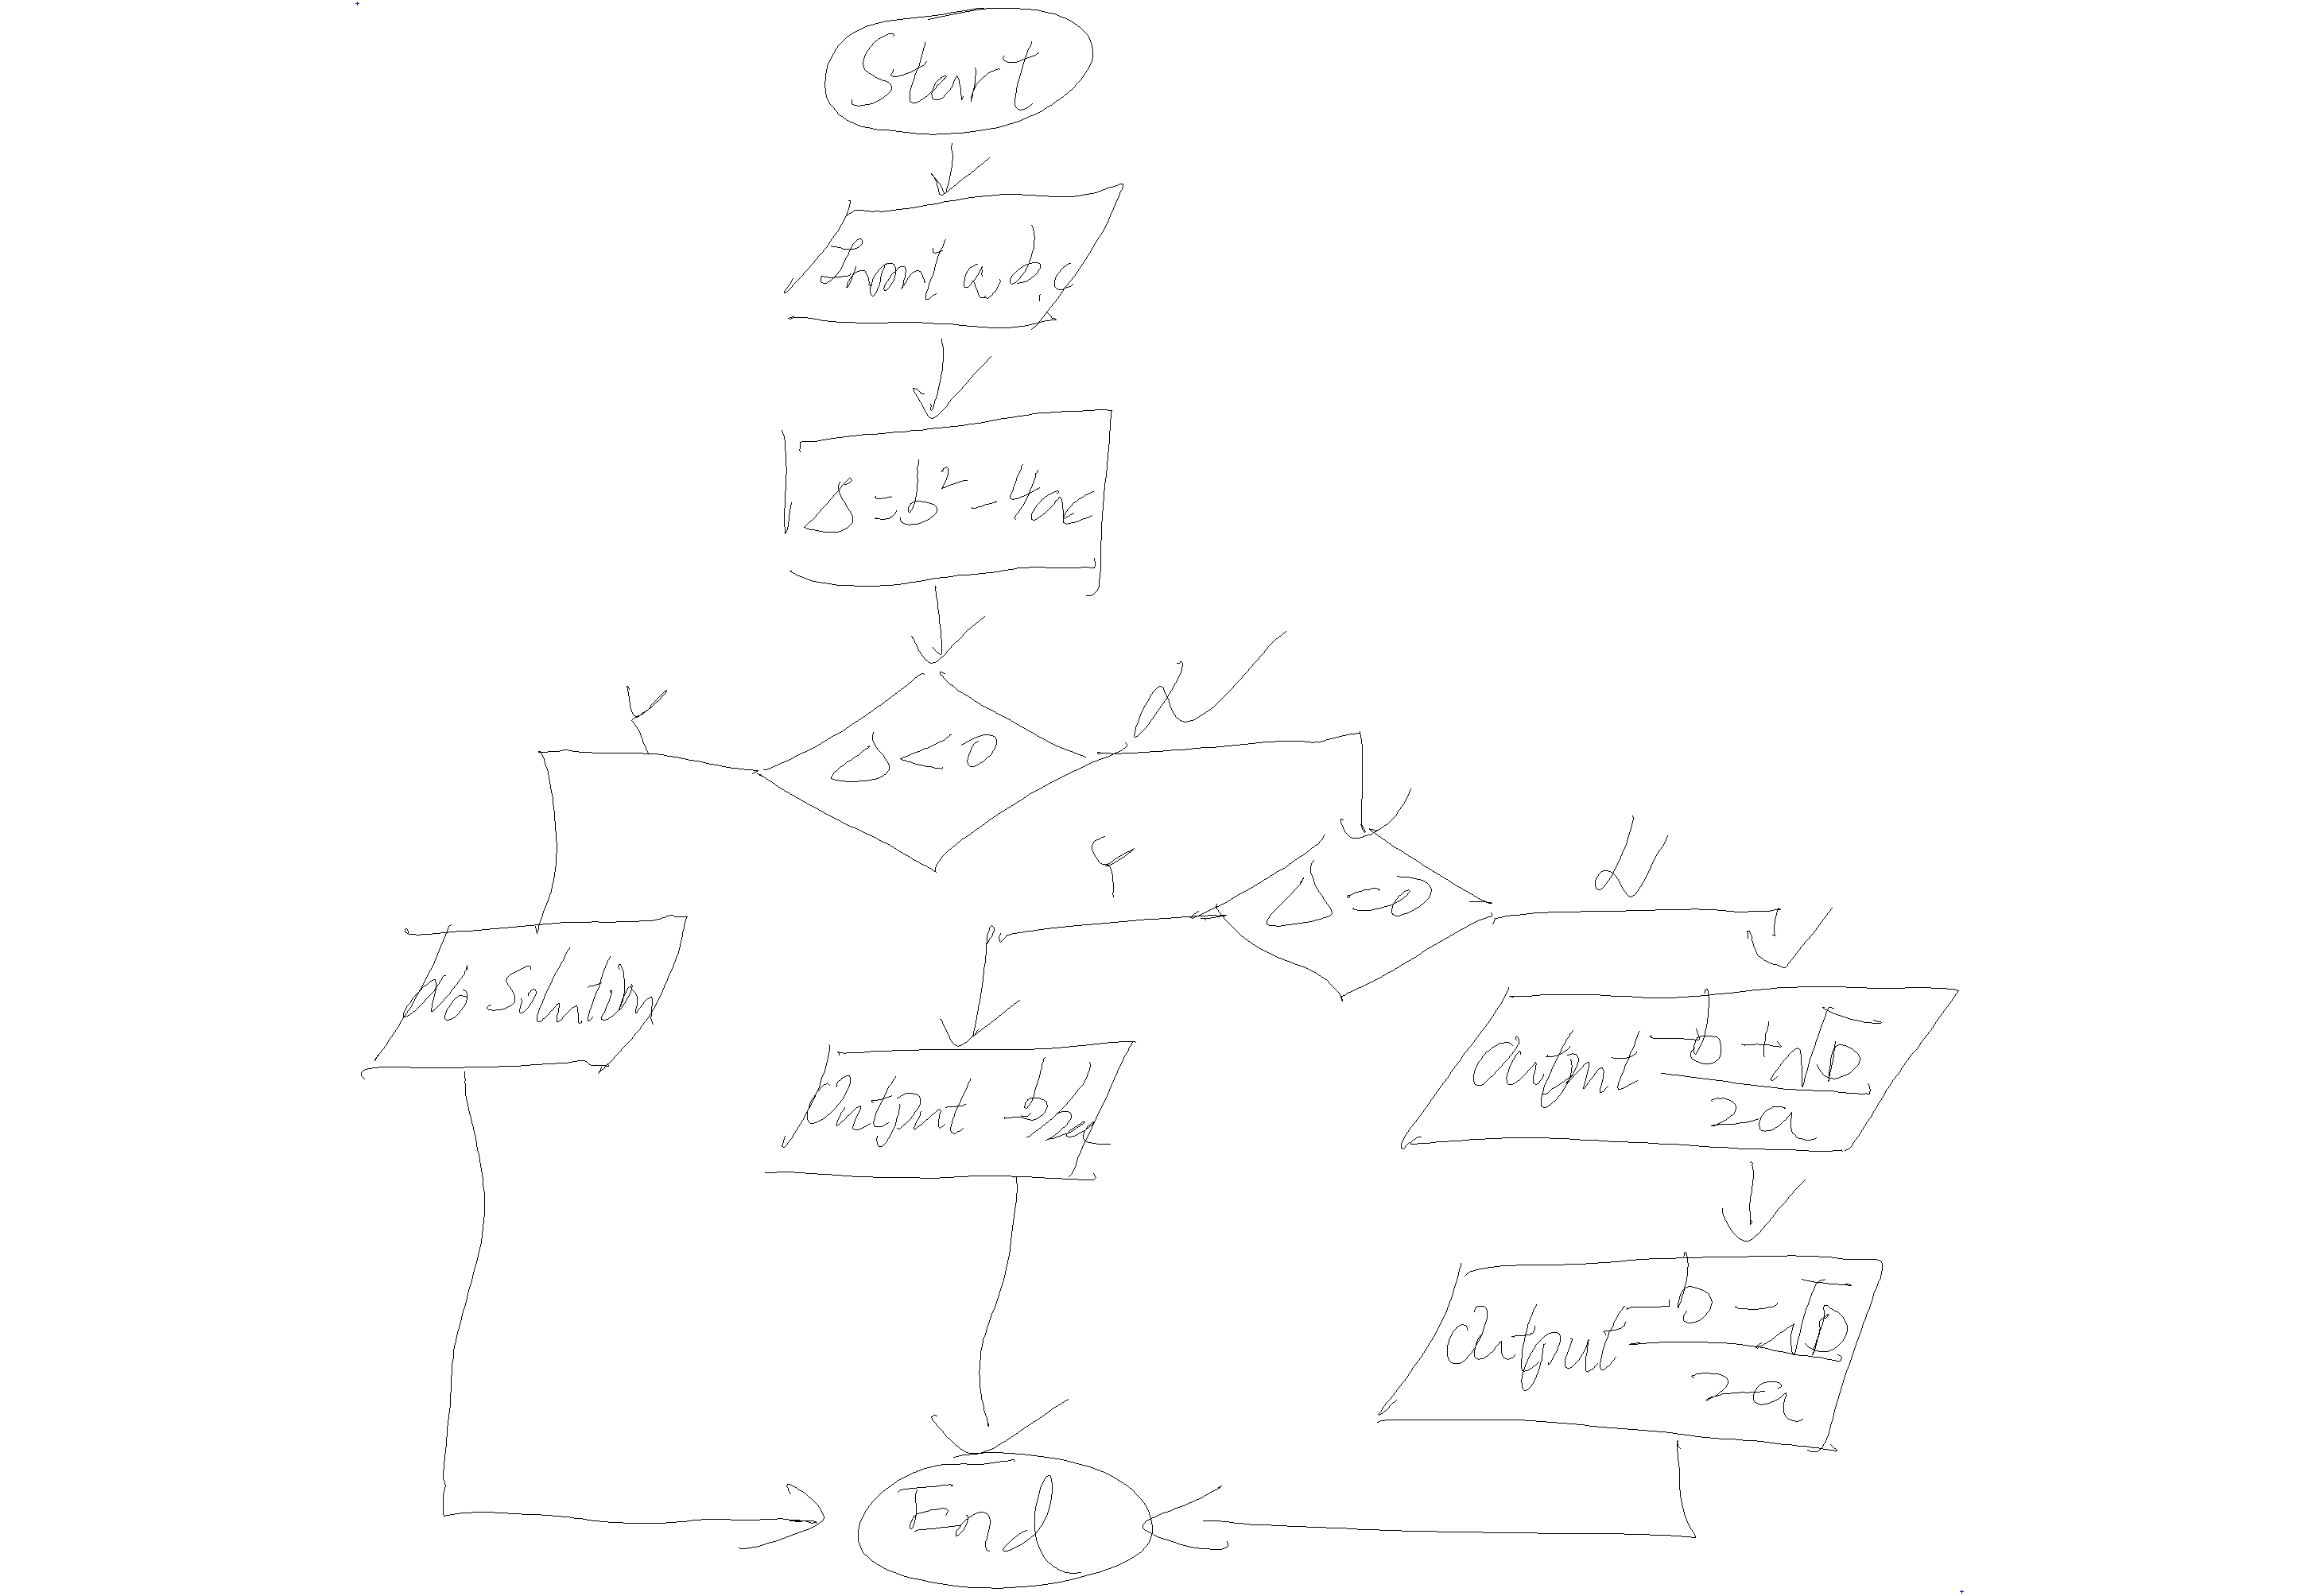 Start
Input a, b, c
Δ = b² - 4ac
Y
N
Δ < 0
Y
Δ = 0
N
No Solution
Output -b/2a
Output (-b + √D)/2a
Output (-b - √D)/2a
End